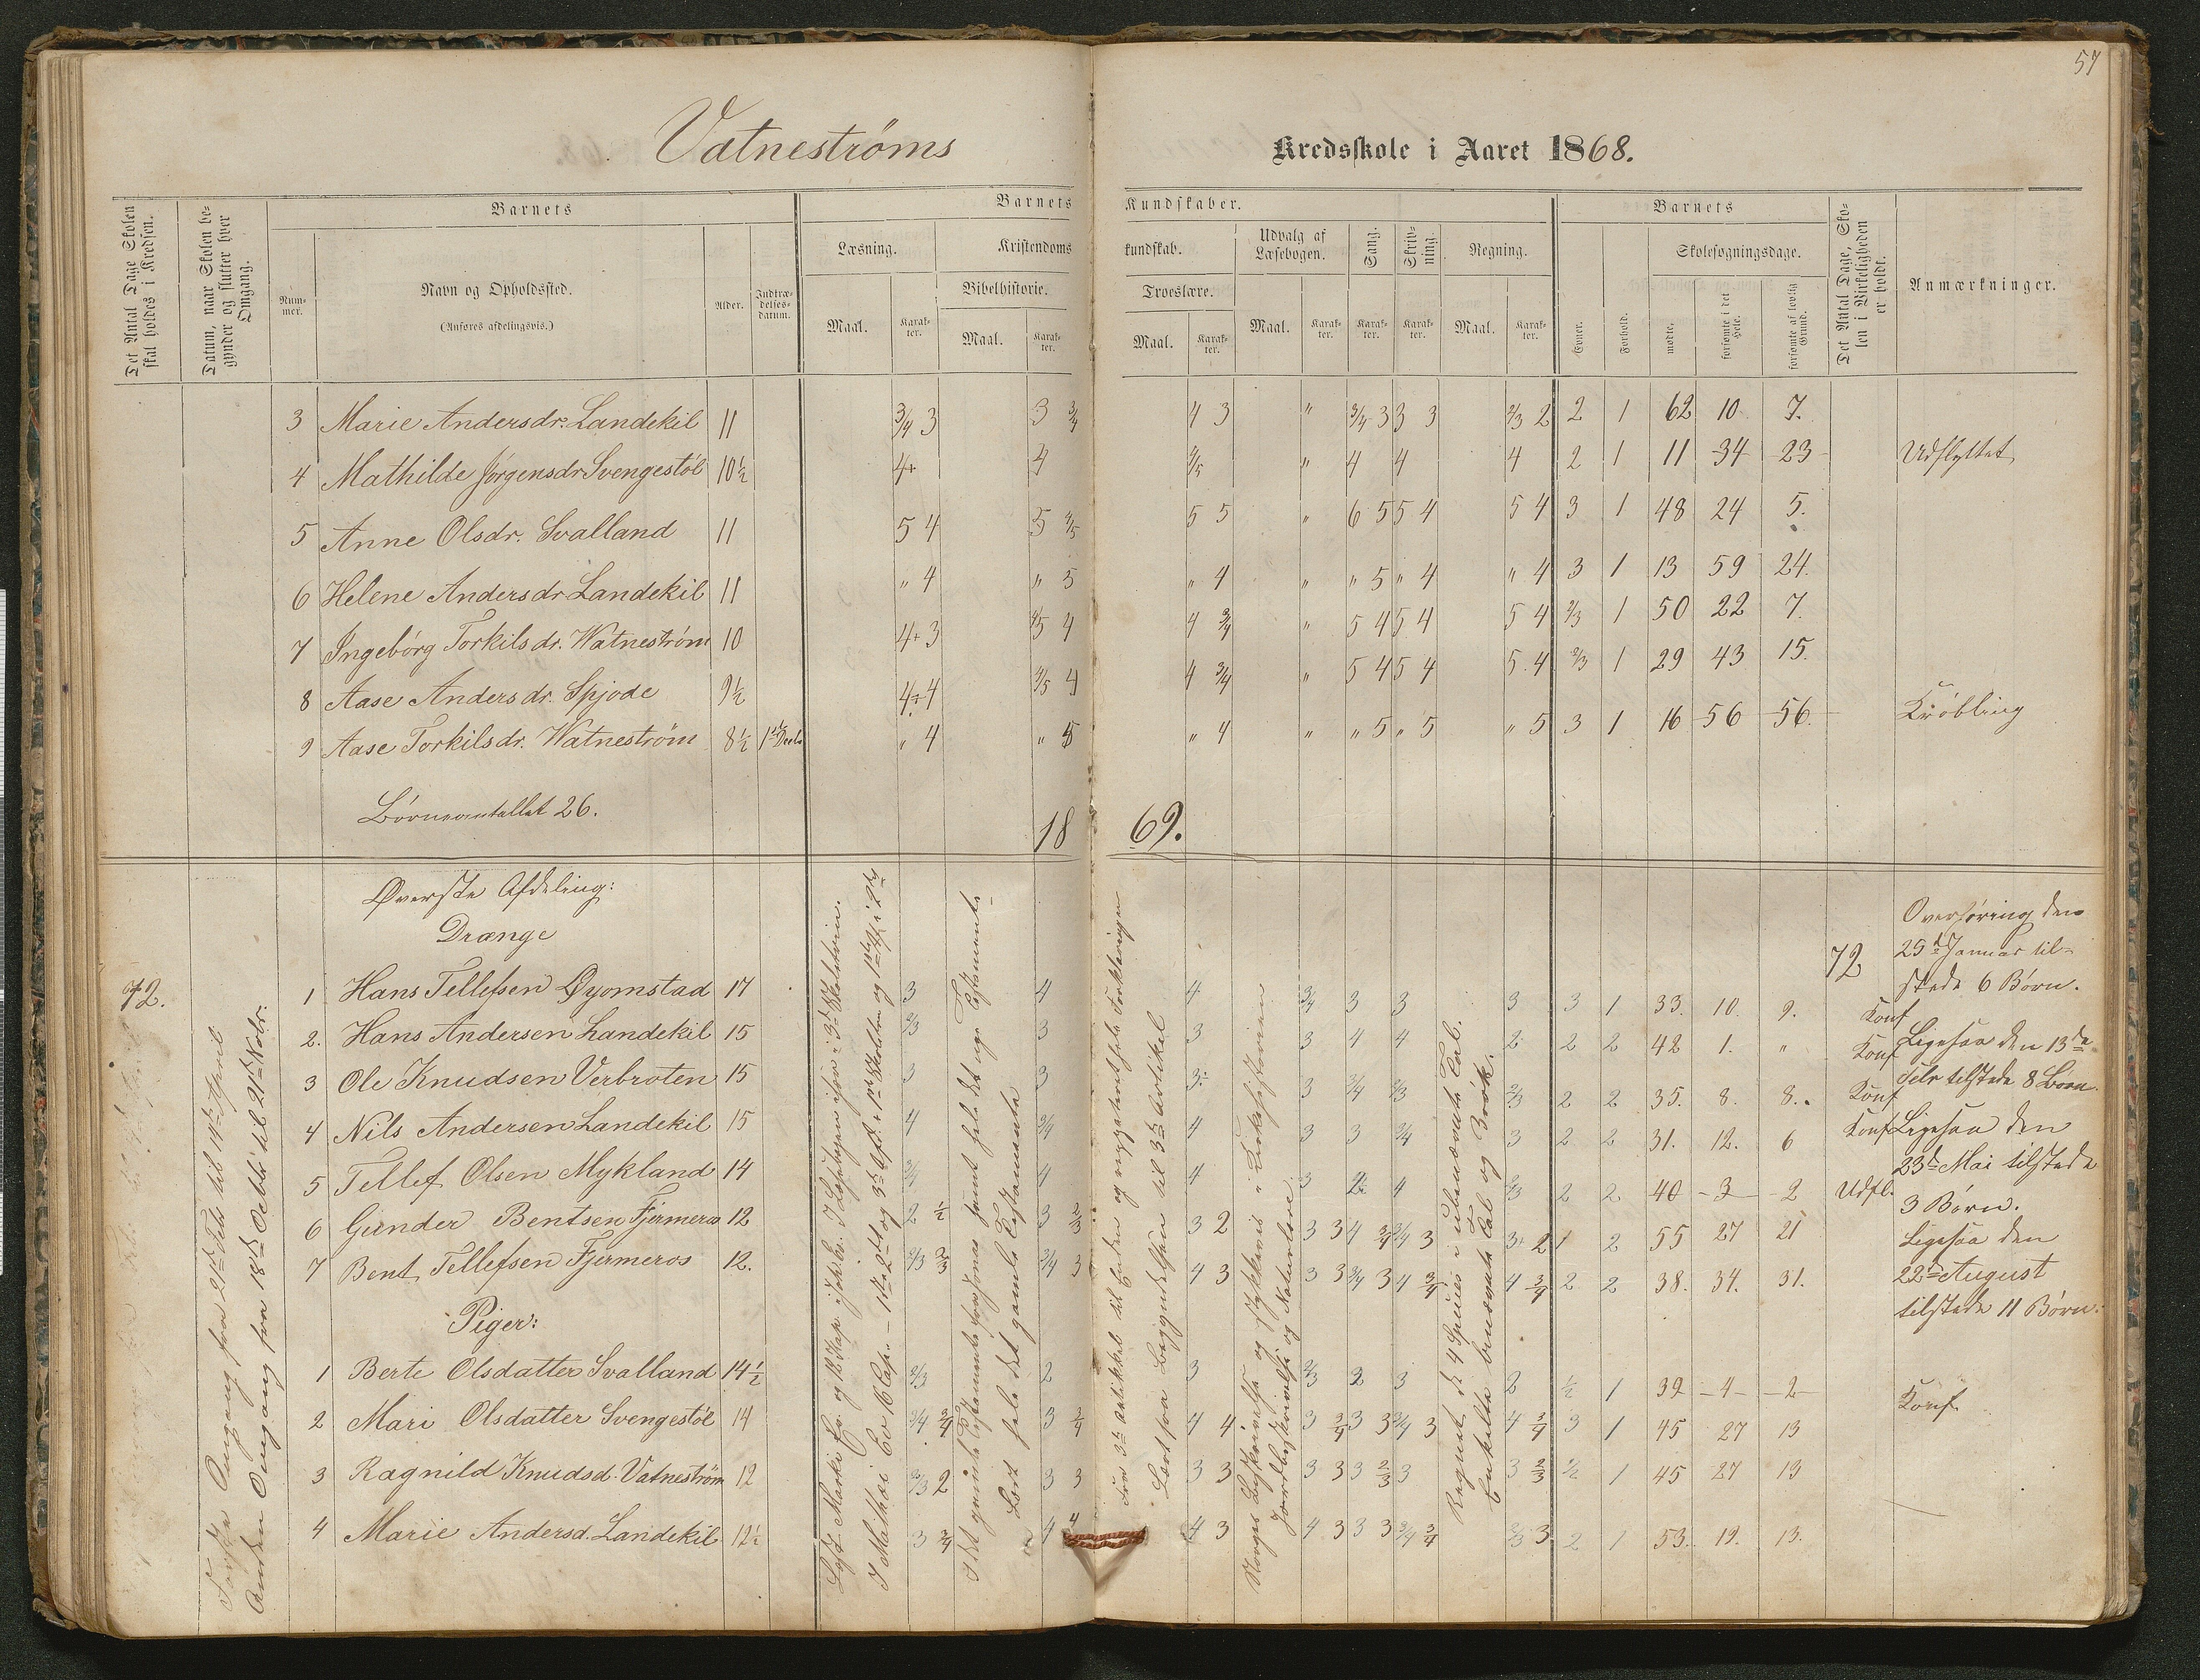 57
Vatneströms Kredsskole i Aaret 1868.
Det Antal Dage Skolen skal holdes i Kredsen.
Datum, naar Skolen begynder og slutter hver Omgang.
Barnets
Nummer.
Navn og Opholdssted.
(Anføres afdelingsvis.)
Alder.
Indtrædelsesdatum.
Barnets Kundskaber.
Læsning.
Maal.
Karakter.
Kristendomskundskab.
Bibelhistorie.
Maal.
Karakter.
Troeslære.
Maal.
Karakter.
Udvalg af Læsebogen.
Maal.
Karakter.
Sang.
Karakter.
Skrivning.
Karakter.
Regning.
Maal.
Karakter.
Barnets
Evner.
Forhold.
Skolesøgningsdage.
mødte.
forsømte i det Hele.
forsømte af lovlig Grund.
Det Antal Dage, Skolen i Virkeligheden er holdt.
Anmærkninger.
3 Marie Andersdr. Landekil 11 3/4 3 3 3/4 4 3 " 3/4 3 3 3 2/3 2 2 1 62 10 7.
4 Mathilde Jørgensdr Svengestöl 10½ 4+ 4 4/5 " 4 4 4 2 1 11 34 23 Udflyttet
5 Anne Olsdr. Svalland 11 5 4 5 4/5 5 5 " 6 5 5 4 5 4 3 1 48 24 5.
6 Helene Andersdr Landekil 11 " 4 " 5 " 4 " " 5 " 4 " 4 3 1 13 59 24.
7 Ingebórg Torkilsdr. Watneström 10 4+ 3 4/5 4 4 3/4 " 5 4 5 4 5 4 2/3 1 50 22 7.
8 Aase Andersdr. Spjode 9½ 4+ 4 4/5 4 4 3/4 " 5 4 5 4 5 4 2/3 1 29 43 15.
9 Aase Torkilsdr. Watneström 8½ " 4 " 5 " 4 " " 5 " 5 " 5 3 1 16 56 56. Kröbling
Börneantallet 26.
18 69.
Øverste Afdeling:
Drænge
72.
Første Omgang fra 21de Febr til 14de April
Anden Omgang fra 18de Octbr til 21de Novbr.
1 Hans Tellefsen Øyomstad 17 3 4 4 3/4 3 3 3 3 1 33. 10. 9. Konf
2. Hans Andersen Landekil 15 2/3 3 3 3 4 4 2 2 2 42 1. " Konf
3 Ole Knudsen Verbroten 15 3 3 3 3 3/4 2/3 2/3 2 2 35. 8. 8. Konf
4 Nils Andersen Landekil 15 4 3/4 4 3 3 3/4 3 2 2 31. 12. 6 Konf
5 Tellef Olsen Mykland 14 3/4 4 4 3 4 2/3 2 2 40 3 2 Udfl.
6 Gunder Bentsen Fjermeros 12 2 ½ 3 2/3 3 2 3 3 4 3/4 3/4 3 3+ 2 1 2 55 27 21
7 Bent Tellefsen Fjermeros 12. 2/3 2/3 3/4 3 4 3 3 3 3/4 3 4 3/4 4 3/4 2 2 38. 34. 31.
Piger:
1 Berte Olsdatter Svalland 14½ 2/3 2 3 2/3 2 3 2 ½ 1 39 4 2 Konf
2 Mari Olsdatter Svengestöl 14 3/4 3/4 3 3/4 4 4 3 3/4 3 3 3/4 3 4 3/4 3 1 45 27 13
3 Ragnild Knudsd. Vatneström 12 2/3 2 3 3 3 3 3 3 3 2/3 3 3 2/3 ½ 1 45 27 13
4 Marie Andersd. Landekil 12½ 3 3/4 4 4 4 3 4 3 3 3 3/4 3/4 3 2 1 53. 19. 13.
I det gamle Testamente
Læst fra Begyndelsen til 3de Artikel
Norges Beskrivelse og Stykkevis i Kirkehistorien
Jordbeskrivelse og Naturlære
Regnet de 4 Species i ubenævnte Tal.
Enkelte benævnte Tal og Brøk.
72
Overhöring den
25de Januar til-
stede 6 Børn.
Ligesaa den 13de
Febr tilstede 8 Børn.
Ligesaa den
23de Mai tilstede
3 Børn.
Ligesaa den
22de August
tilstede 11 Børn.